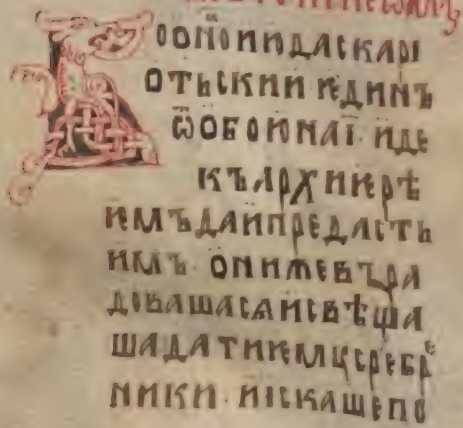 оонои июдаскарі
отьскии ѥдинъ
ѿобоюнаі· иде
къархиѥрѣ
ѥмъдаипредасть
имъ· онижевъзра
довашасѧисвѣща
шадатиѥмꙋсребрⷷ
ники· иискашепо